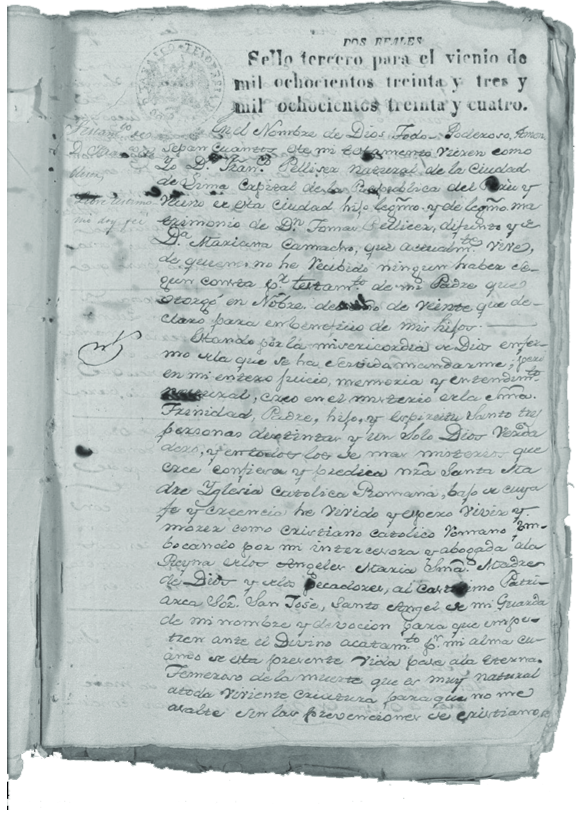 DOS REALES
Sello tercero para el vienio de
mil ochocientos treinta y tres y
mil ochocientos treinta y cuatro.
En el Nombre de Dios Todo Poderoso, Amen.
Sepan Cuantos este mi testamento Vieren como
Yo Dn. Fran.co Pellicer Natural de la Ciudad
de Lima Capital de la Republica del Peru y
Vecino de esta ciudad hijo legmo. y de legmo. ma
trimonio de Dn. Tomas Pellicer, difunto y de
Da. Mariana Camacho, que actualmte. Vive,
de quienes no he Recibido ningun haber se
gun consta pr. testamto. de mi Padre que
otorgó en Nobre. de Veinte que de
claro para en beneficio de mis hijos.
Estando por la misericordia de Dios enfer
mo de la que se ha servido mandarme, pero
en mi entero juicio, memoria y entendimto.
natural, creo en el misterio de la Sma.
Trinidad, Padre, hijo, y Espiritu Santo tres
personas distintas y un Solo Dios Verda
dero, y en todos los de mas misterios que
cree confiesa y predica nra. Santa Ma
dre Yglesia Catolica Romana, bajo de cuya
fe y Creencia he Vivido y espero Vivir y
morir como cristiano catolico Romano, im
bocando por mi intercesora y abogada a la
Reyna de los Angeles Maria Sma. Madre
de Dios y de los pecadores, al Castisimo Patri
arca Sor. San José, Santo Angel de mi Guarda
de mi nombre y divocion para que impe
tren ante el Divino acatamto. pr. mi alma cu
ando de esta presente Vida pase a la eterna.
Temeroso de la muerte que es muy natural
a toda Viviente Criatura para que no me
asalte sin las prevenciones de cristiano,